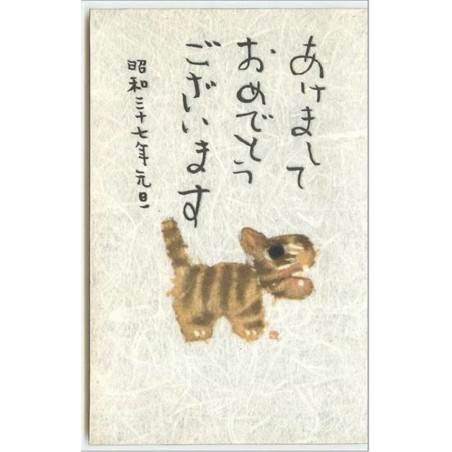 あけまして
おめでとう
ございます
昭和三十七年元旦